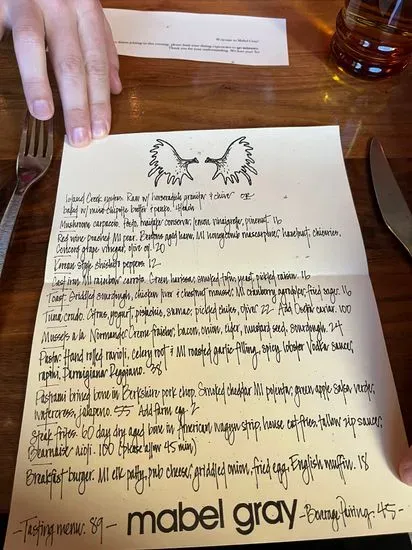 Welcome to Mabel Gray!
Island Creek oysters. Raw w/ horseradish granita & chive or
baked w/ miso-chipotle butter & panko.
Mushroom carpaccio. Pesto, maitake conserva, lemon vinaigrette, pinenut. 16
Red wine poached MI pear. Bentons aged ham, MI honeycomb mascarpone, hazelnut, chicories,
Concord grape vinegar, olive oil. 20
Korean style shishito peppers. 12
Cast iron MI rainbow carrots. Green harissa, smoked tofu, yeast, pickled raisin. 16
Toast. Griddled sourdough, chicken liver & chestnut mousse, MI cranberry agrodolce, fried sage. 16
Tuna crudo. Citrus, yogurt, pistachio, sumac, pickled chiles, olive. 22 Add Osetra caviar. 100
Mussels a la Normande. Creme fraiche, bacon, onion, cider, mustard seed, sourdough. 24
Pasta. Hand rolled ravioli, celery root & MI roasted garlic filling, spicy lobster vodka sauce,
rapini, Parmigiana Reggiano. 38
Pastrami brined bone in Berkshire pork chop. Smoked cheddar MI polenta, green apple salsa verde,
watercress, jalapeno. 55 Add farm egg. 2
Steak frites. 60 day dry aged bone in American wagyu strip, house cut fries, tallow zip sauce,
Bearnaise aioli. 100 (please allow 45 min)
Breakfast burger. MI elk patty, pub cheese, griddled onion, fried egg, English muffin. 18
-Tasting menu. 89- mabel gray -Beverage Pairing. 45-